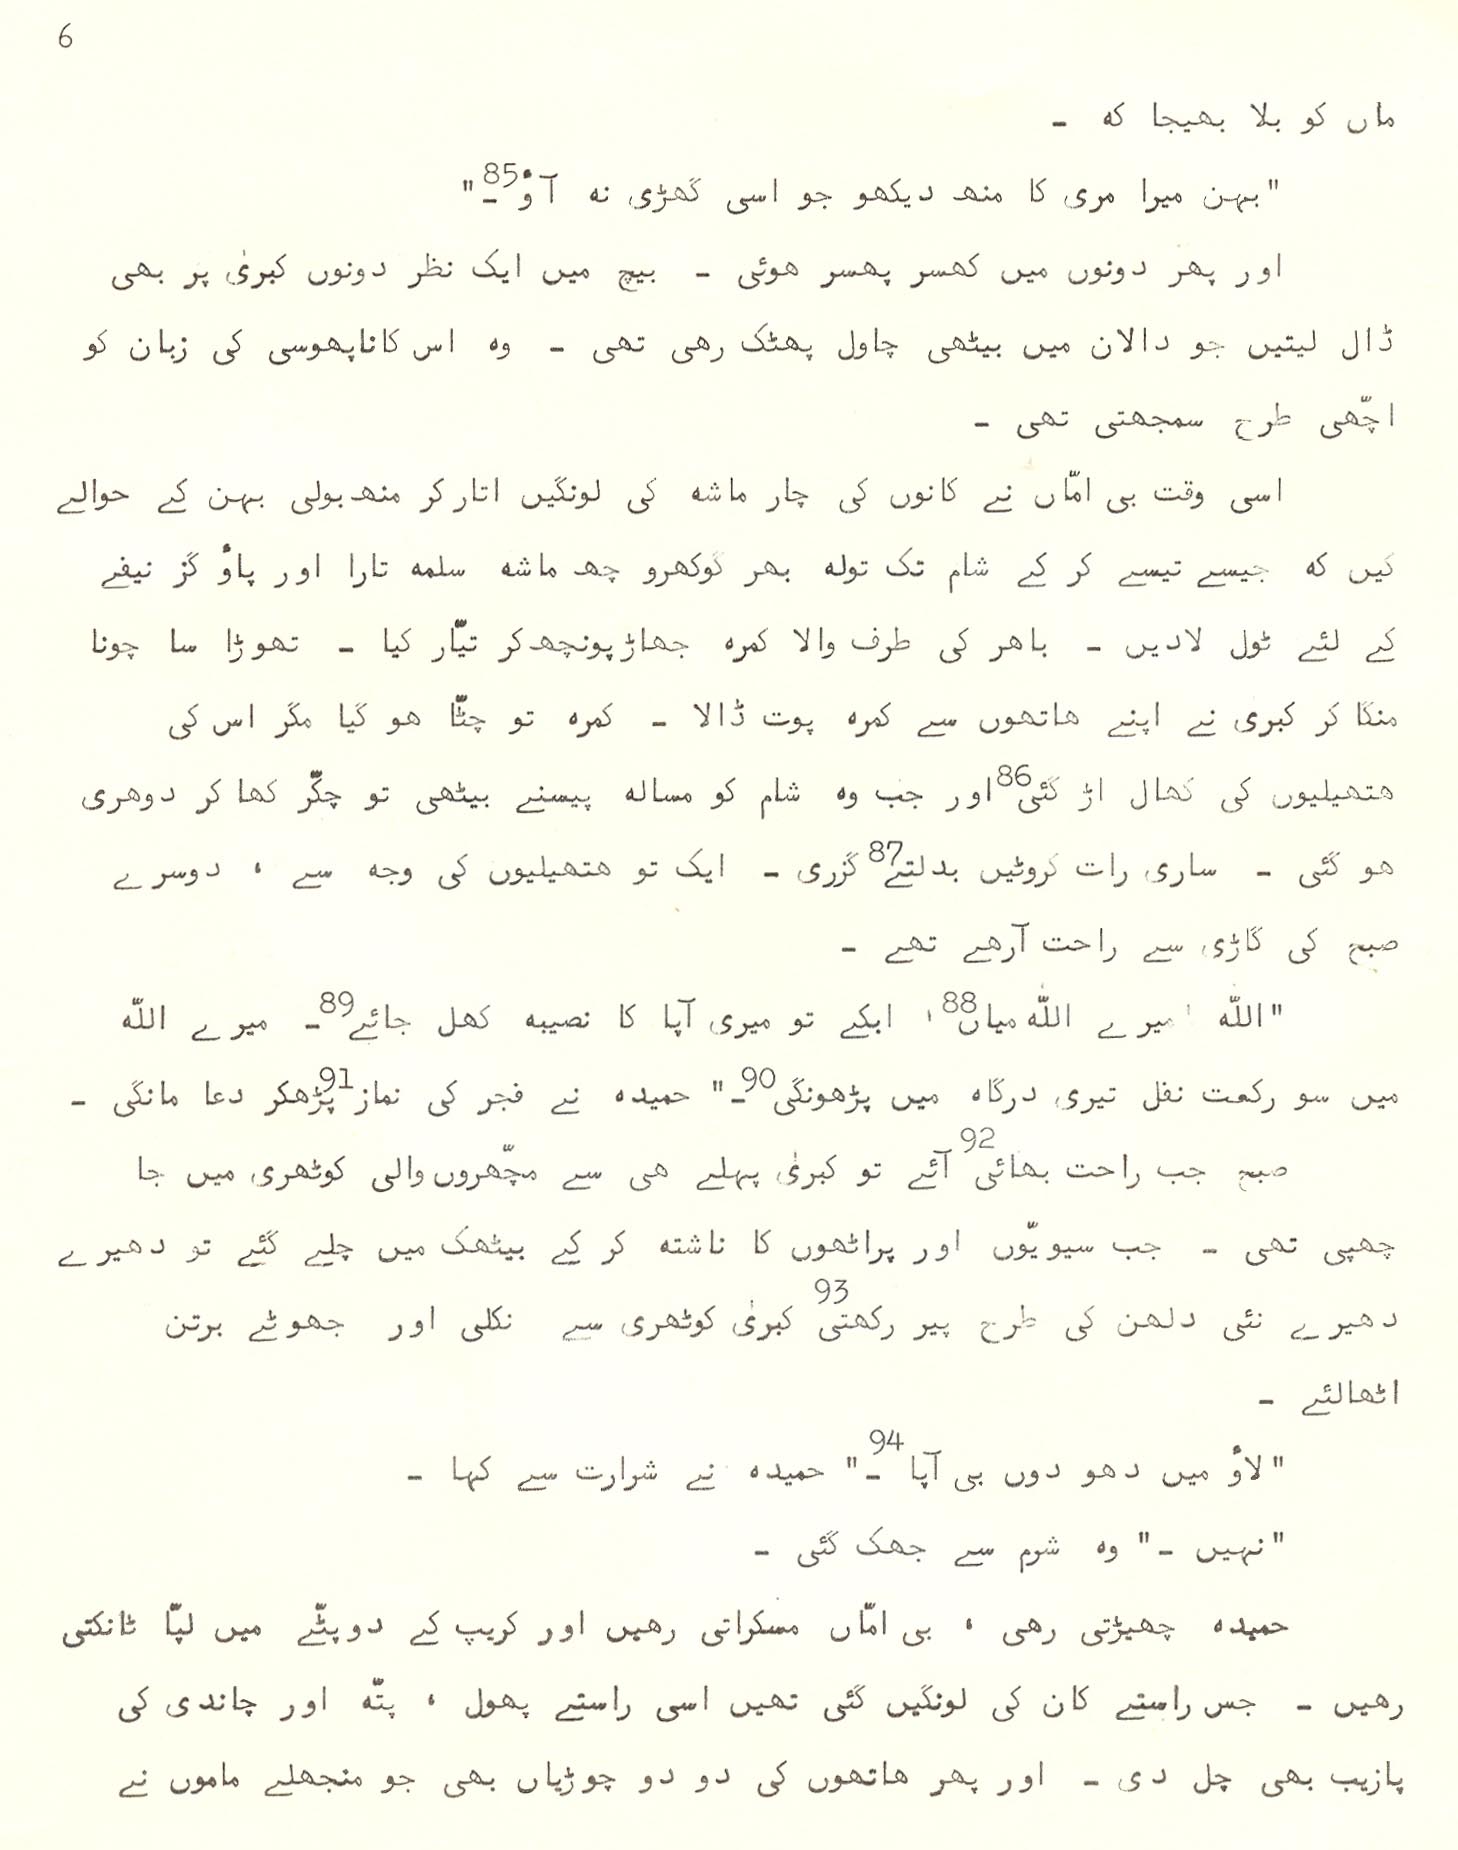 6
ماں کو بلا بھیجا کہ ـ
"بہن میرا مری کا منھ دیکھو جو اسی گھڑی نہ آؤ85ـ"
اور پھر دونوں میں کھسر پھسر ھوئی ـ بیچ میں ایک نظر دونوں کبریٰ پر بھی
ڈال لیتیں جو دالان میں بیٹھی چاول پھٹک رھی تھی ـ وہ اس کاناپھوسی کی زبان کو
اچّھی طرح سمجھتی تھی ـ
اسی وقت بی امّاں نے کانوں کی چار ماشہ کی لونگیں اتارکر منھ‌بولی بہن کے حوالے
کیں کہ جیسے تیسے کر کے شام تک تولہ بھر گوکھرو چھ ماشہ سلمہ تارا اور پاؤ گز نیفے
کے لئے ٹول لادیں ـ باھر کی طرف والا کمرہ جھاڑپونچھ‌کر تیّار کیا ـ تھوڑا سا چونا
منگا کر کبری نے اپنے ھاتھوں سے کمرہ پوت ڈالا ـ کمرہ تو چٹّا ھو گیا مگر اس کی
ھتھیلیوں کی کھال اڑ گئی86 اور جب وہ شام کو مسالہ پیسنے بیٹھی تو چکّر کھا کر دوھری
ھو گئی ـ ساری رات کروٹیں بدلتے87 گزری ـ ایک تو ھتھیلیوں کی وجہ سے ، دوسرے
صبح کی گاڑی سے راحت آرھے تھے ـ
"اللّہ ! میرے اللّہ میاں88 ، ابکے تو میری آپا کا نصیبہ کھل جائے89ـ میرے اللّہ
میں سو رکعت نفل تیری درگاہ میں پڑھونگی90ـ" حمیدہ نے فجر کی نماز91 پڑھکر دعا مانگی ـ
صبح جب راحت بھائی92 آئے تو کبریٰ پہلے ھی سے مچّھروں والی کوٹھری میں جا
چھپی تھی ـ جب سیویّوں اور پراٹھوں کا ناشتہ کر کے بیٹھک میں چلے گئے تو دھیرے
دھیرے نئی دلھن کی طرح پیر رکھتی93 کبریٰ کوٹھری سے نکلی اور جھوٹے برتن
اٹھالئے ـ
"لاؤ میں دھو دوں بی آپا94 ـ" حمیدہ نے شرارت سے کہا ـ
"نہیں ـ" وہ شرم سے جھک گئی ـ
حمیدہ چھیڑتی رھی ، بی امّاں مسکراتی رھیں اور کریپ کے دوپٹّے میں لپّا ٹانکتی
رھیں ـ جس راستے کان کی لونگیں گئی تھیں اسی راستے پھول ، پتّہ اور چاندی کی
پازیب بھی چل دی ـ اور پھر ھاتھوں کی دو دو چوڑیاں بھی جو منجھلے ماموں نے